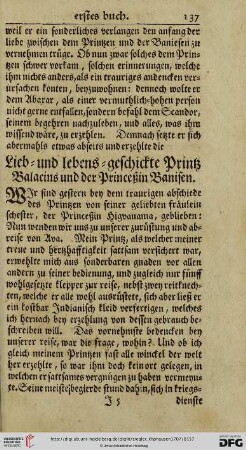 erstes buch. 137
weil er ein sonderliches verlangen den anfang der
liebe zwischen dem Printzen und der Banisen zu
vernehmen trüge. Ob nun zwar solches dem Prin-
tzen schwer vorkam, solchen erinnerungen, welche
ihm nichts anders, als ein trauriges andencken ver-
ursachen konten, beyzuwohnen: dennoch wolte er
dem Abaxar, als einer vermuthlich-hohen person
nicht gerne entfallen, sondern befahl dem Scandor,
seinem begehren nachzuleben, und alles, was ihm
wissend wäre, zu erzehlen. Demnach setzte er sich
abermahls etwas abseits und erzehlte die
Lieb- und lebens-geschichte Printz
Balacins und der Princeßin Banisen.
WIr sind gestern bey dem traurigen abschiede
des Printzen von seiner geliebten fräulein
schwester, der Princeßin Higvanama, geblieben:
Nun wenden wir uns zu unserer zurüstung und ab-
reise von Ava. Mein Printz, als welcher meiner
treue und hertzhafftigkeit sattsam versichert war,
erwehlte mich aus sonderbaren gnaden vor allen
andern zu seiner bedienung, und zugleich nur fünff
wohlgesetzte klepper zur reise, nebst zwey reitknech-
ten, welche er alle wohl ausrüstete, sich aber ließ er
ein kostbar Indianisch kleid verfertigen, welches
ich hernach bey erzehlung von dessen gebrauch be-
schreiben will. Das vornehmste bedencken bey
unserer reise, war die frage, wohin? Und ob ich
gleich meinem Printzen fast alle winckel der welt
her erzehlte, so war ihm doch kein ort gelegen, in
welchen er sattsames vergnügen zu haben vermeyn-
te. Seine meiste begierde stund dahin, sich in kriegs-
J 5 dienste